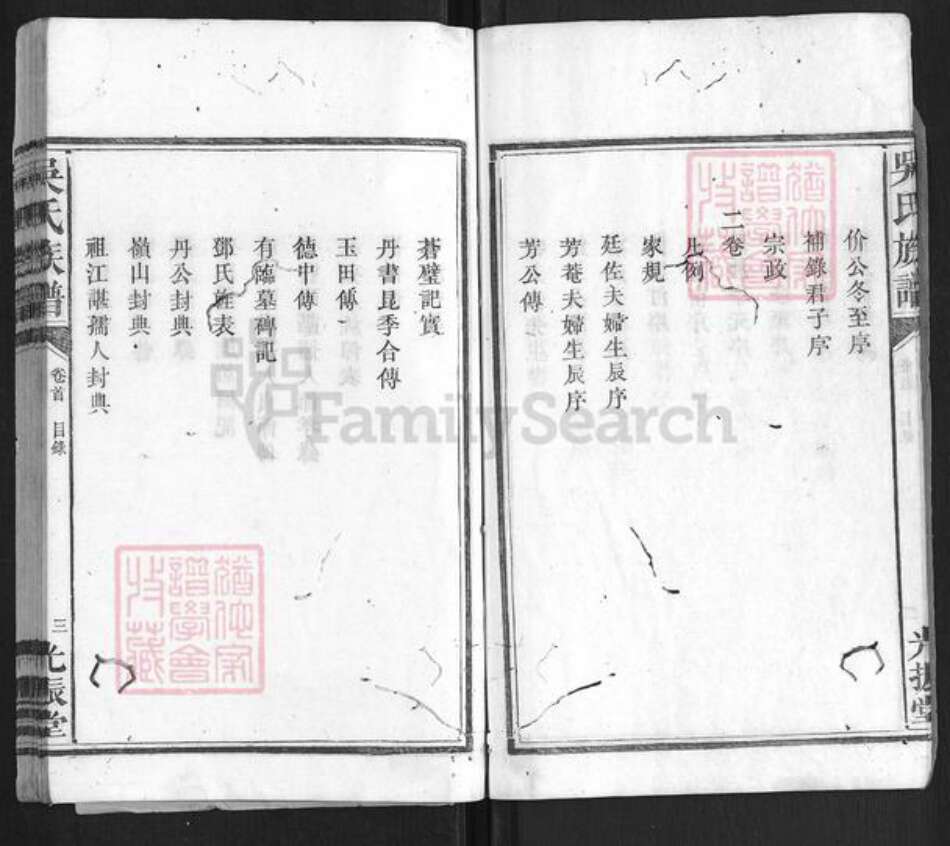 吳氏族譜
光振堂
价公冬至序
補錄君子序
宗政
二卷
凡例
家規
廷佐夫婦生辰序
芳菴夫婦生辰序
芳公傳
蒼璧記實
丹書昆季合傳
玉田傳
德中傳
有臨墓碑記
鄧氏旌表
丹公封典
嶺山封典
祖江諶孺人封典
吳氏族譜
卷首 目錄
三
光振堂
猶他家譜學會收藏
猶他家譜學會收藏
FamilySearch